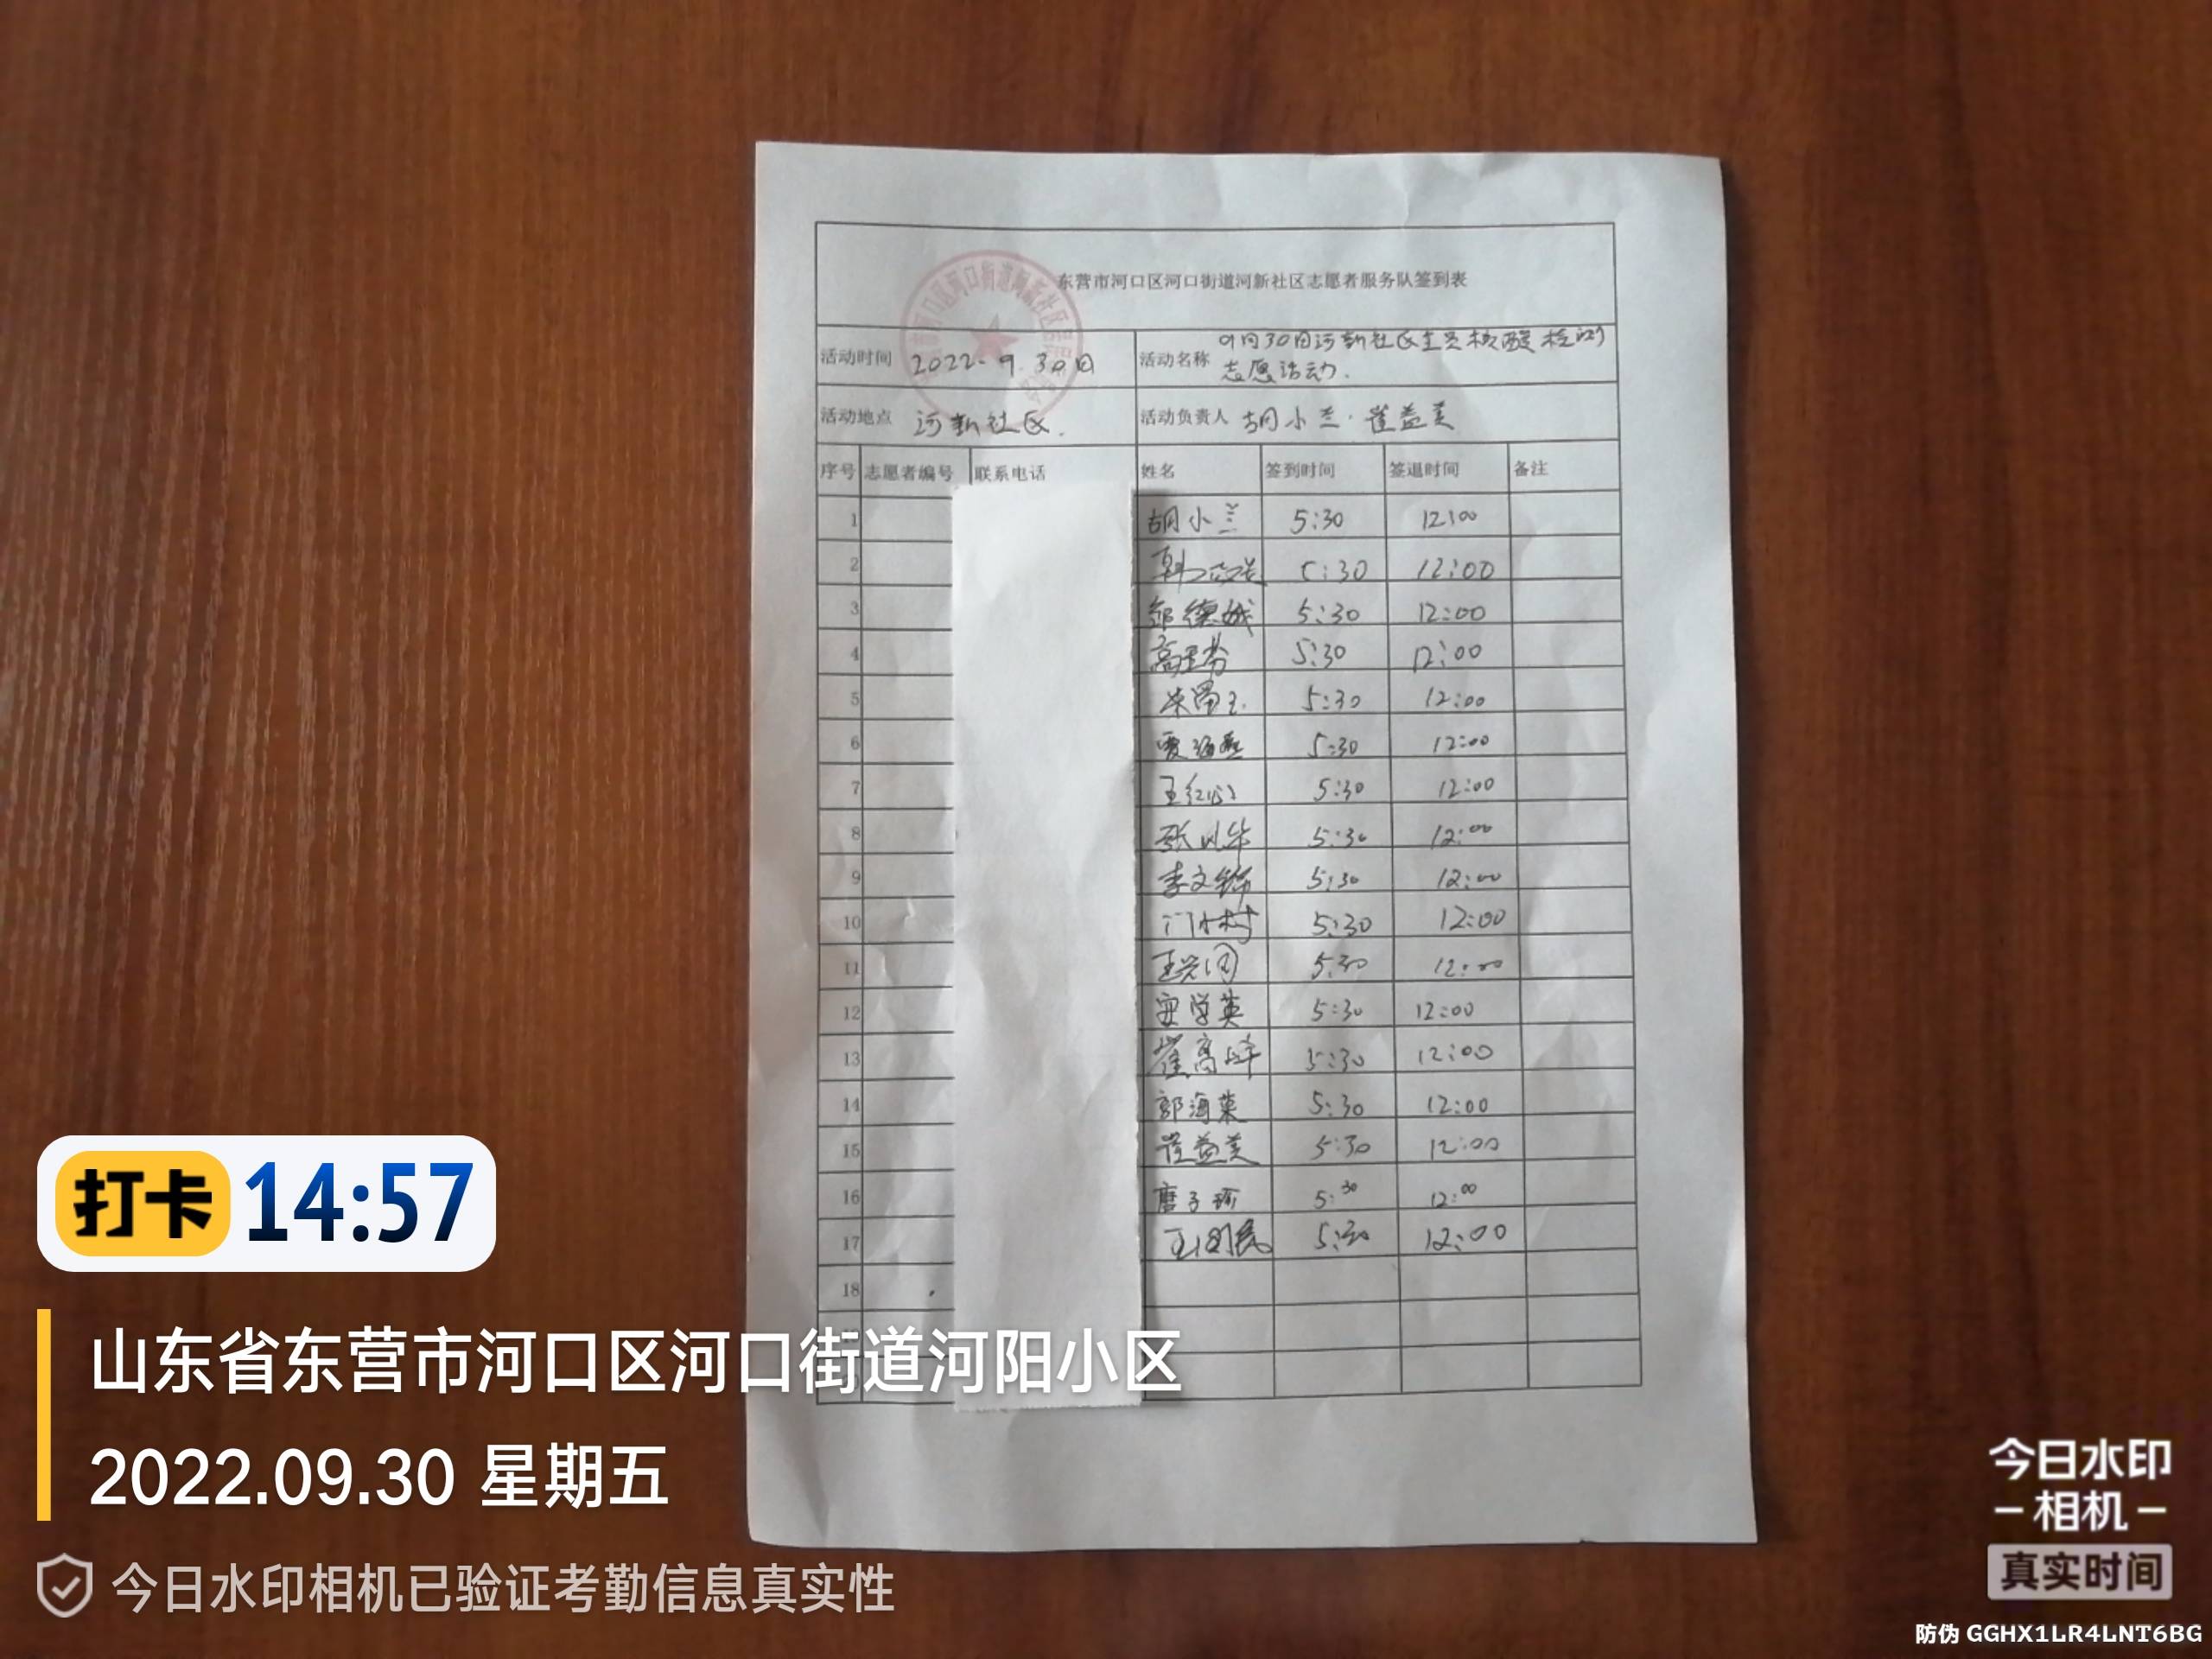 东营市河口区河口街道河新社区志愿者服务队签到表
活动时间 2022.9.30日 活动名称 9月30日河新社区全员核酸检测
志愿活动.
活动地点 河新社区. 活动负责人 胡小兰·崔益美
序号 志愿者编号 联系电话 姓名 签到时间 签退时间 备注
1 胡小兰 5:30 12:00
2 5:30 12:00
3 5:30 12:00
4 5:30 12:00
5 5:30 12:00
6 5:30 12:00
7 5:30 12:00
8 5:30 12:00
9 5:30 12:00
10 5:30 12:00
11 5:30 12:00
12 5:30 12:00
13 崔高峰 5:30 12:00
14 5:30 12:00
15 崔益美 5:30 12:00
16 5:30 12:00
17 5:30 12:00
18
打卡 14:57
山东省东营市河口区河口街道河阳小区
2022.09.30 星期五
今日水印相机已验证考勤信息真实性
今日水印
相机
真实时间
防伪 GGHX1LR4LNT6BG